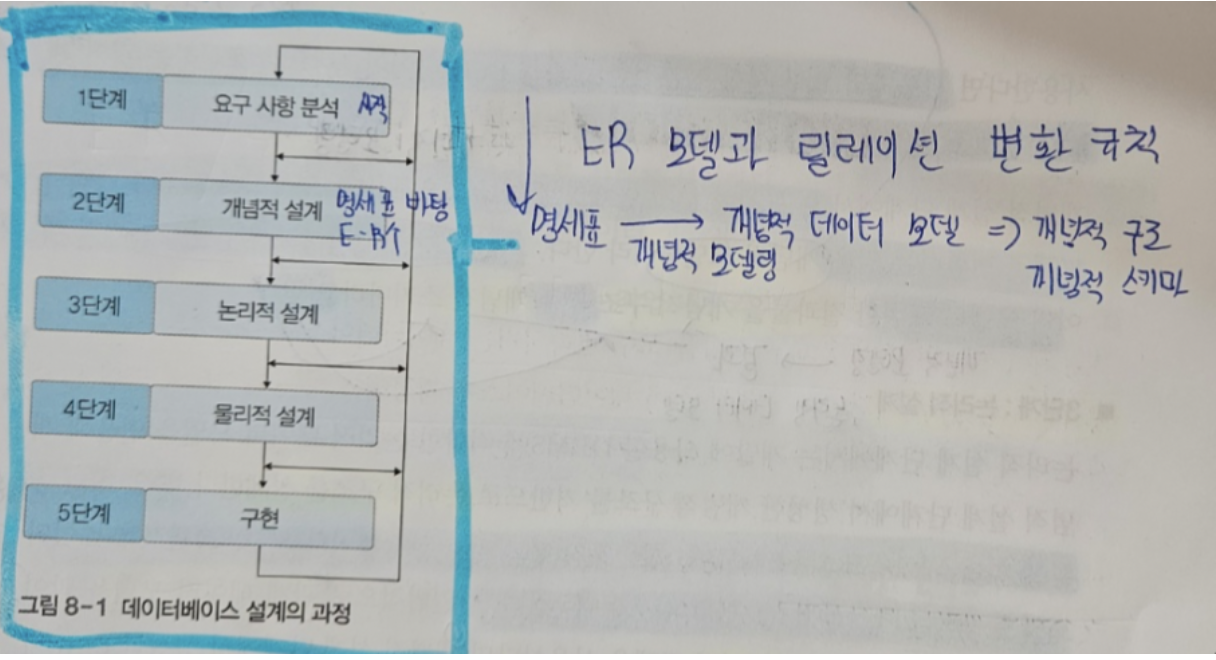 1단계 요구 사항 분석 시작
2단계 개념적 설계 명세표 바탕
3단계 논리적 설계
4단계 물리적 설계
5단계 구현
그림 8-1 데이터베이스 설계의 과정
ER 모델과 릴레이션 변환 규칙
명세표 → 개념적 데이터 모델 => 개념적 구조
개념적 모델링
개념적 스키마